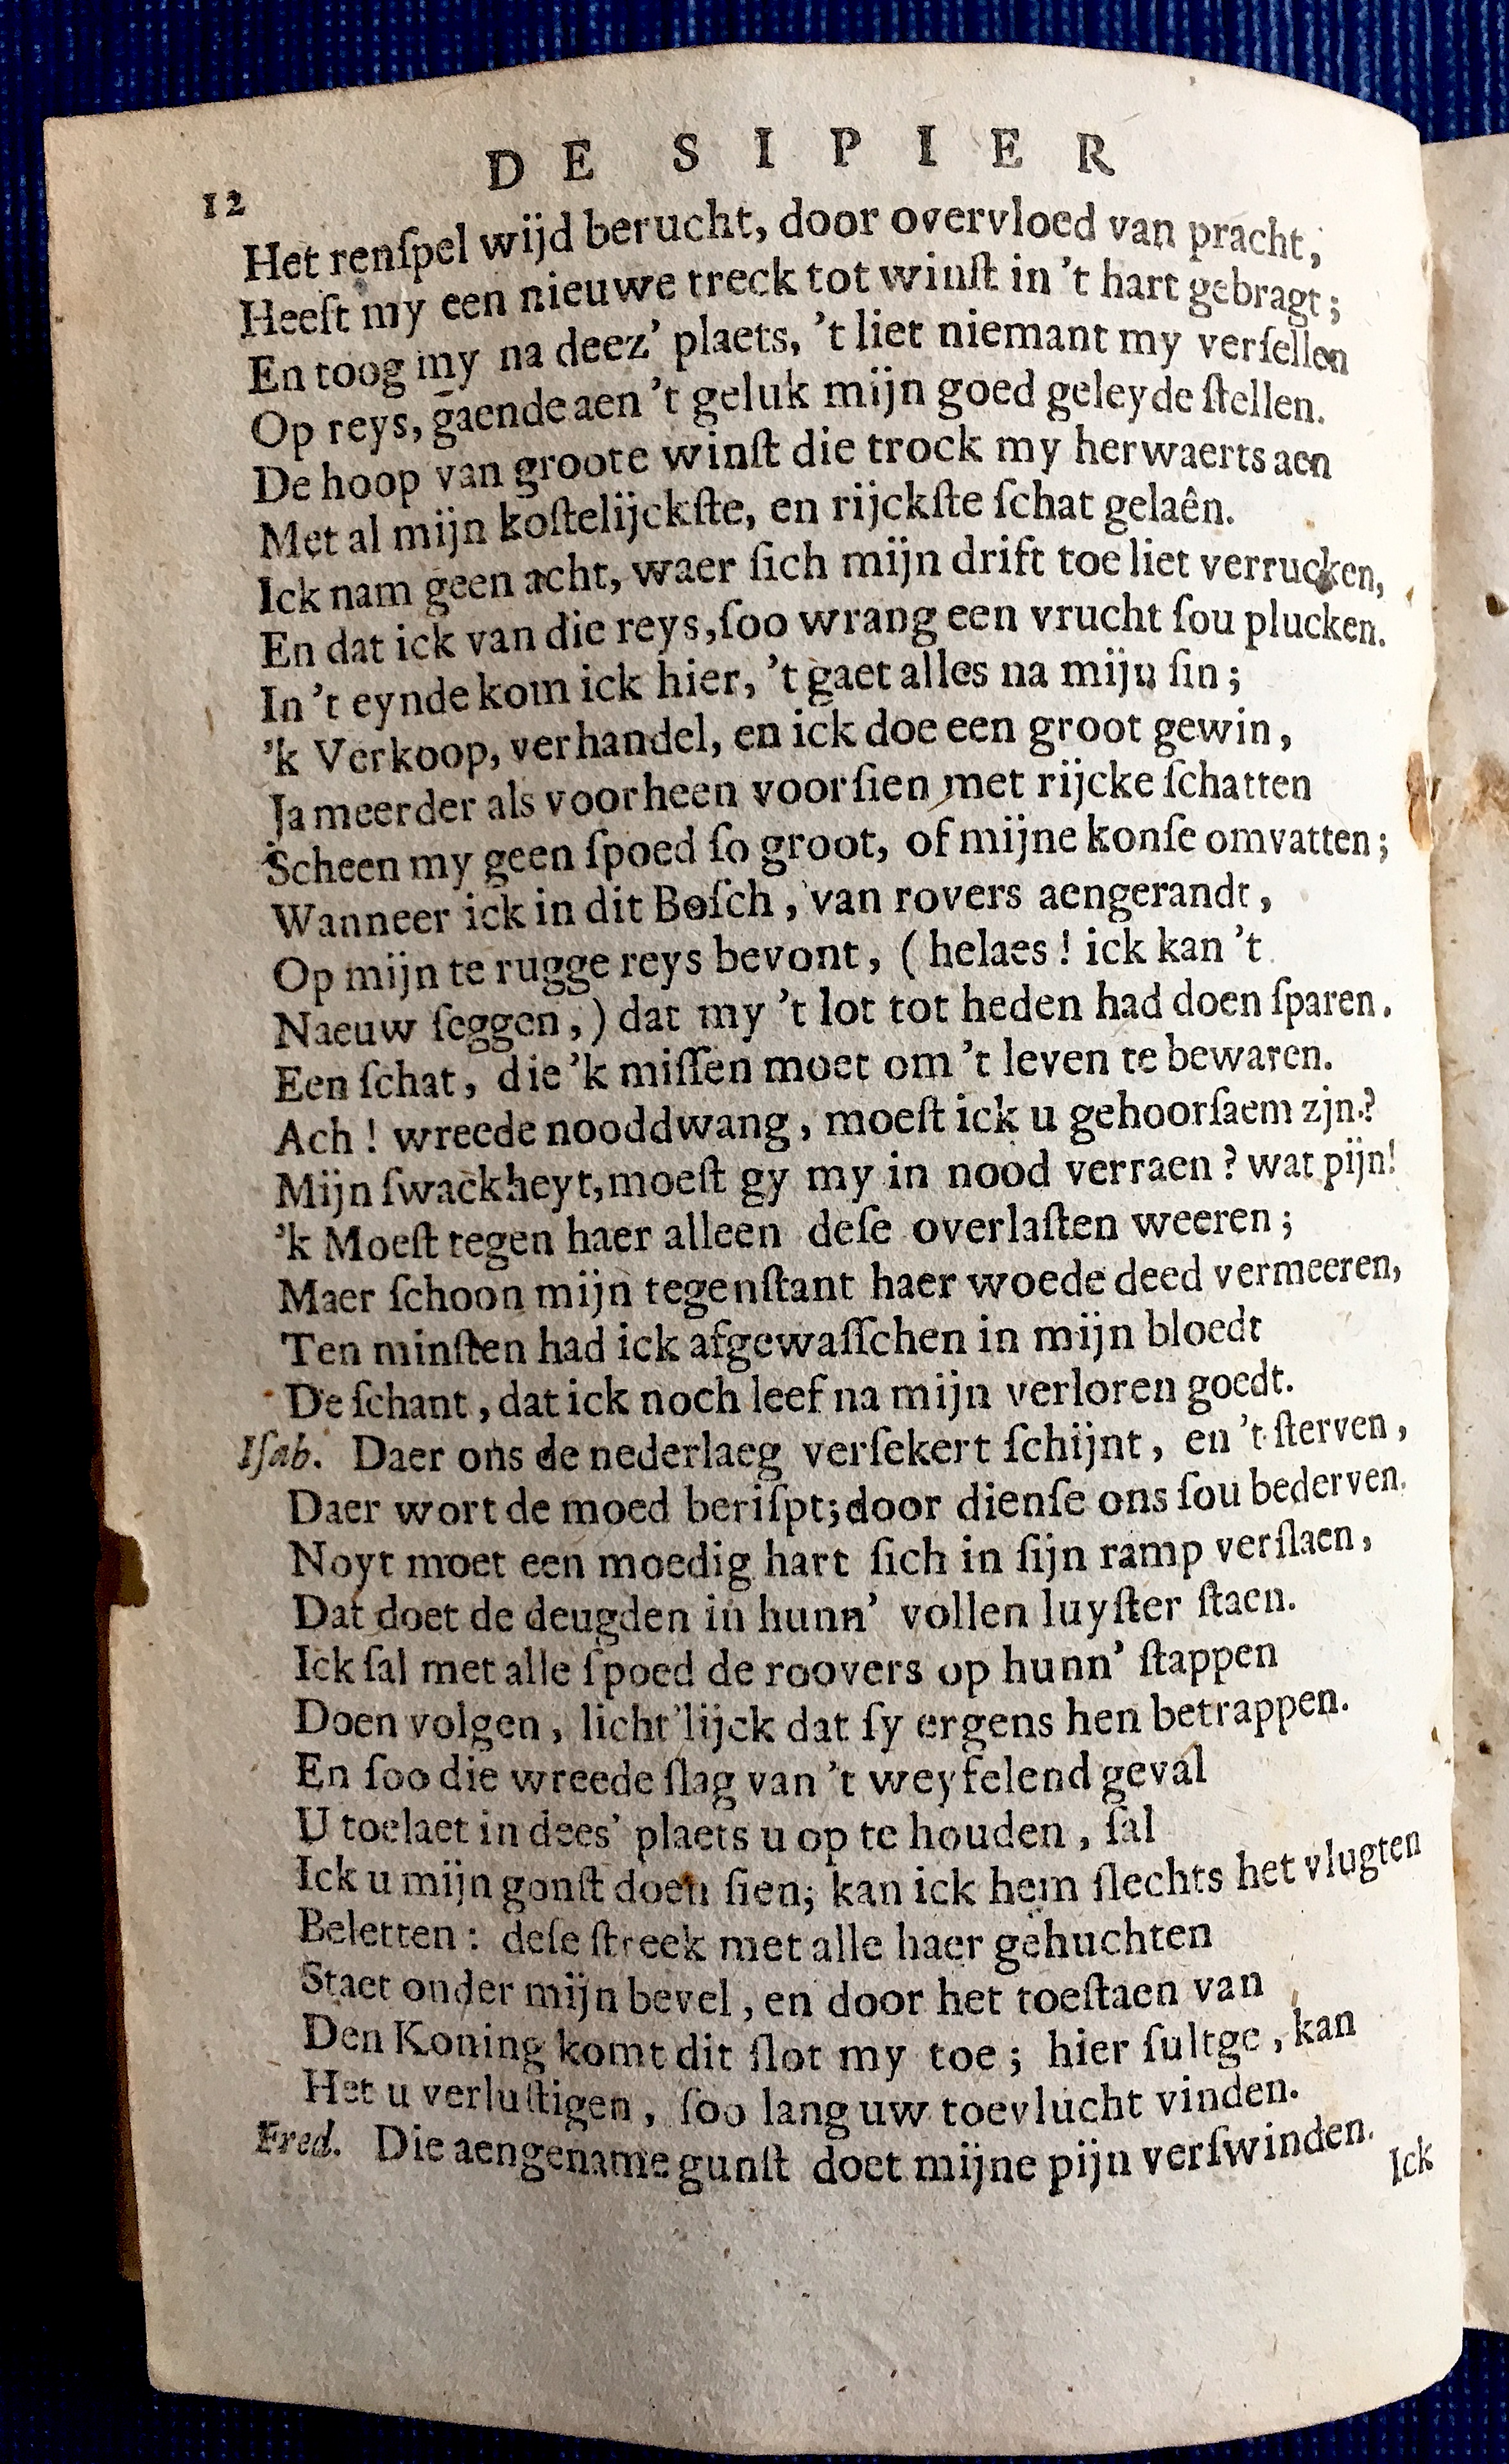 DE SIPIER
12
Het renſpel wijd berucht, door overvloed van pracht,
Heeft my een nieuwe treck tot winſt in 't hart gebragt;
En toog my na deez' plaets, 't liet niemant my verſellen
Op reys, gaende aen 't geluk mijn goed geleyde ſtellen.
De hoop van groote winſt die trock my herwaerts aen
Met al mijn koſtelijckſte, en rijckſte ſchat gelaên.
Ick nam geen acht, waer ſich mijn drift toe liet verrucken,
En dat ick van die reys, ſoo wrang een vrucht ſou plucken.
In 't eynde kom ick hier, 't gaet alles na mijn ſin;
'k Verkoop, verhandel, en ick doe een groot gewin,
Ja meerder als voorheen voorſien met rijcke ſchatten
Scheen my geen ſpoed ſo groot, of mijne konſe omvatten;
Wanneer ick in dit Boſch, van rovers aengerandt,
Op mijn te rugge reys bevont, (helaes! ick kan 't
Naeuw ſeggen,) dat my 't lot tot heden had doen ſparen.
Een ſchat, die 'k miſſen moet om 't leven te bewaren.
Ach! wreede nooddwang, moeſt ick u gehoorſaem zjn?
Mijn ſwackheyt, moeſt gy my in nood verraen? wat pijn!
'k Moeſt tegen haer alleen deſe overlaſten weeren;
Maer ſchoon mijn tegenſtant haer woede deed vermeeren,
Ten minſten had ick afgewaſſchen in mijn bloedt
De ſchant, dat ick noch leef na mijn verloren goedt.
Iſab. Daer ons de nederlaeg verſekert ſchijnt, en 't ſterven,
Daer wort de moed beriſpt; door dienſe ons ſou bederven.
Noyt moet een moedig hart ſich in ſijn ramp verſlaen,
Dat doet de deugden in hunn' vollen luyſter ſtaen.
Ick ſal met alle ſpoed de roovers op hunn' ſtappen
Doen volgen, licht'lijck dat ſy ergens hen betrappen.
En ſoo die wreede ſlag van 't weyfelend geval
U toelaet in dees' plaets u op te houden, ſal
Ick u mijn gonſt doen ſien; kan ick hem ſlechts het vlugten
Beletten: deſe ſtreek met alle haer gehuchten
Staet onder mijn bevel, en door het toeſtaen van
Den Koning komt dit ſlot my toe; hier ſultge, kan
Het u verluſtigen, ſoo lang uw toevlucht vinden.
Fred. Die aengename gunſt doet mijne pijn verſwinden.
Ick